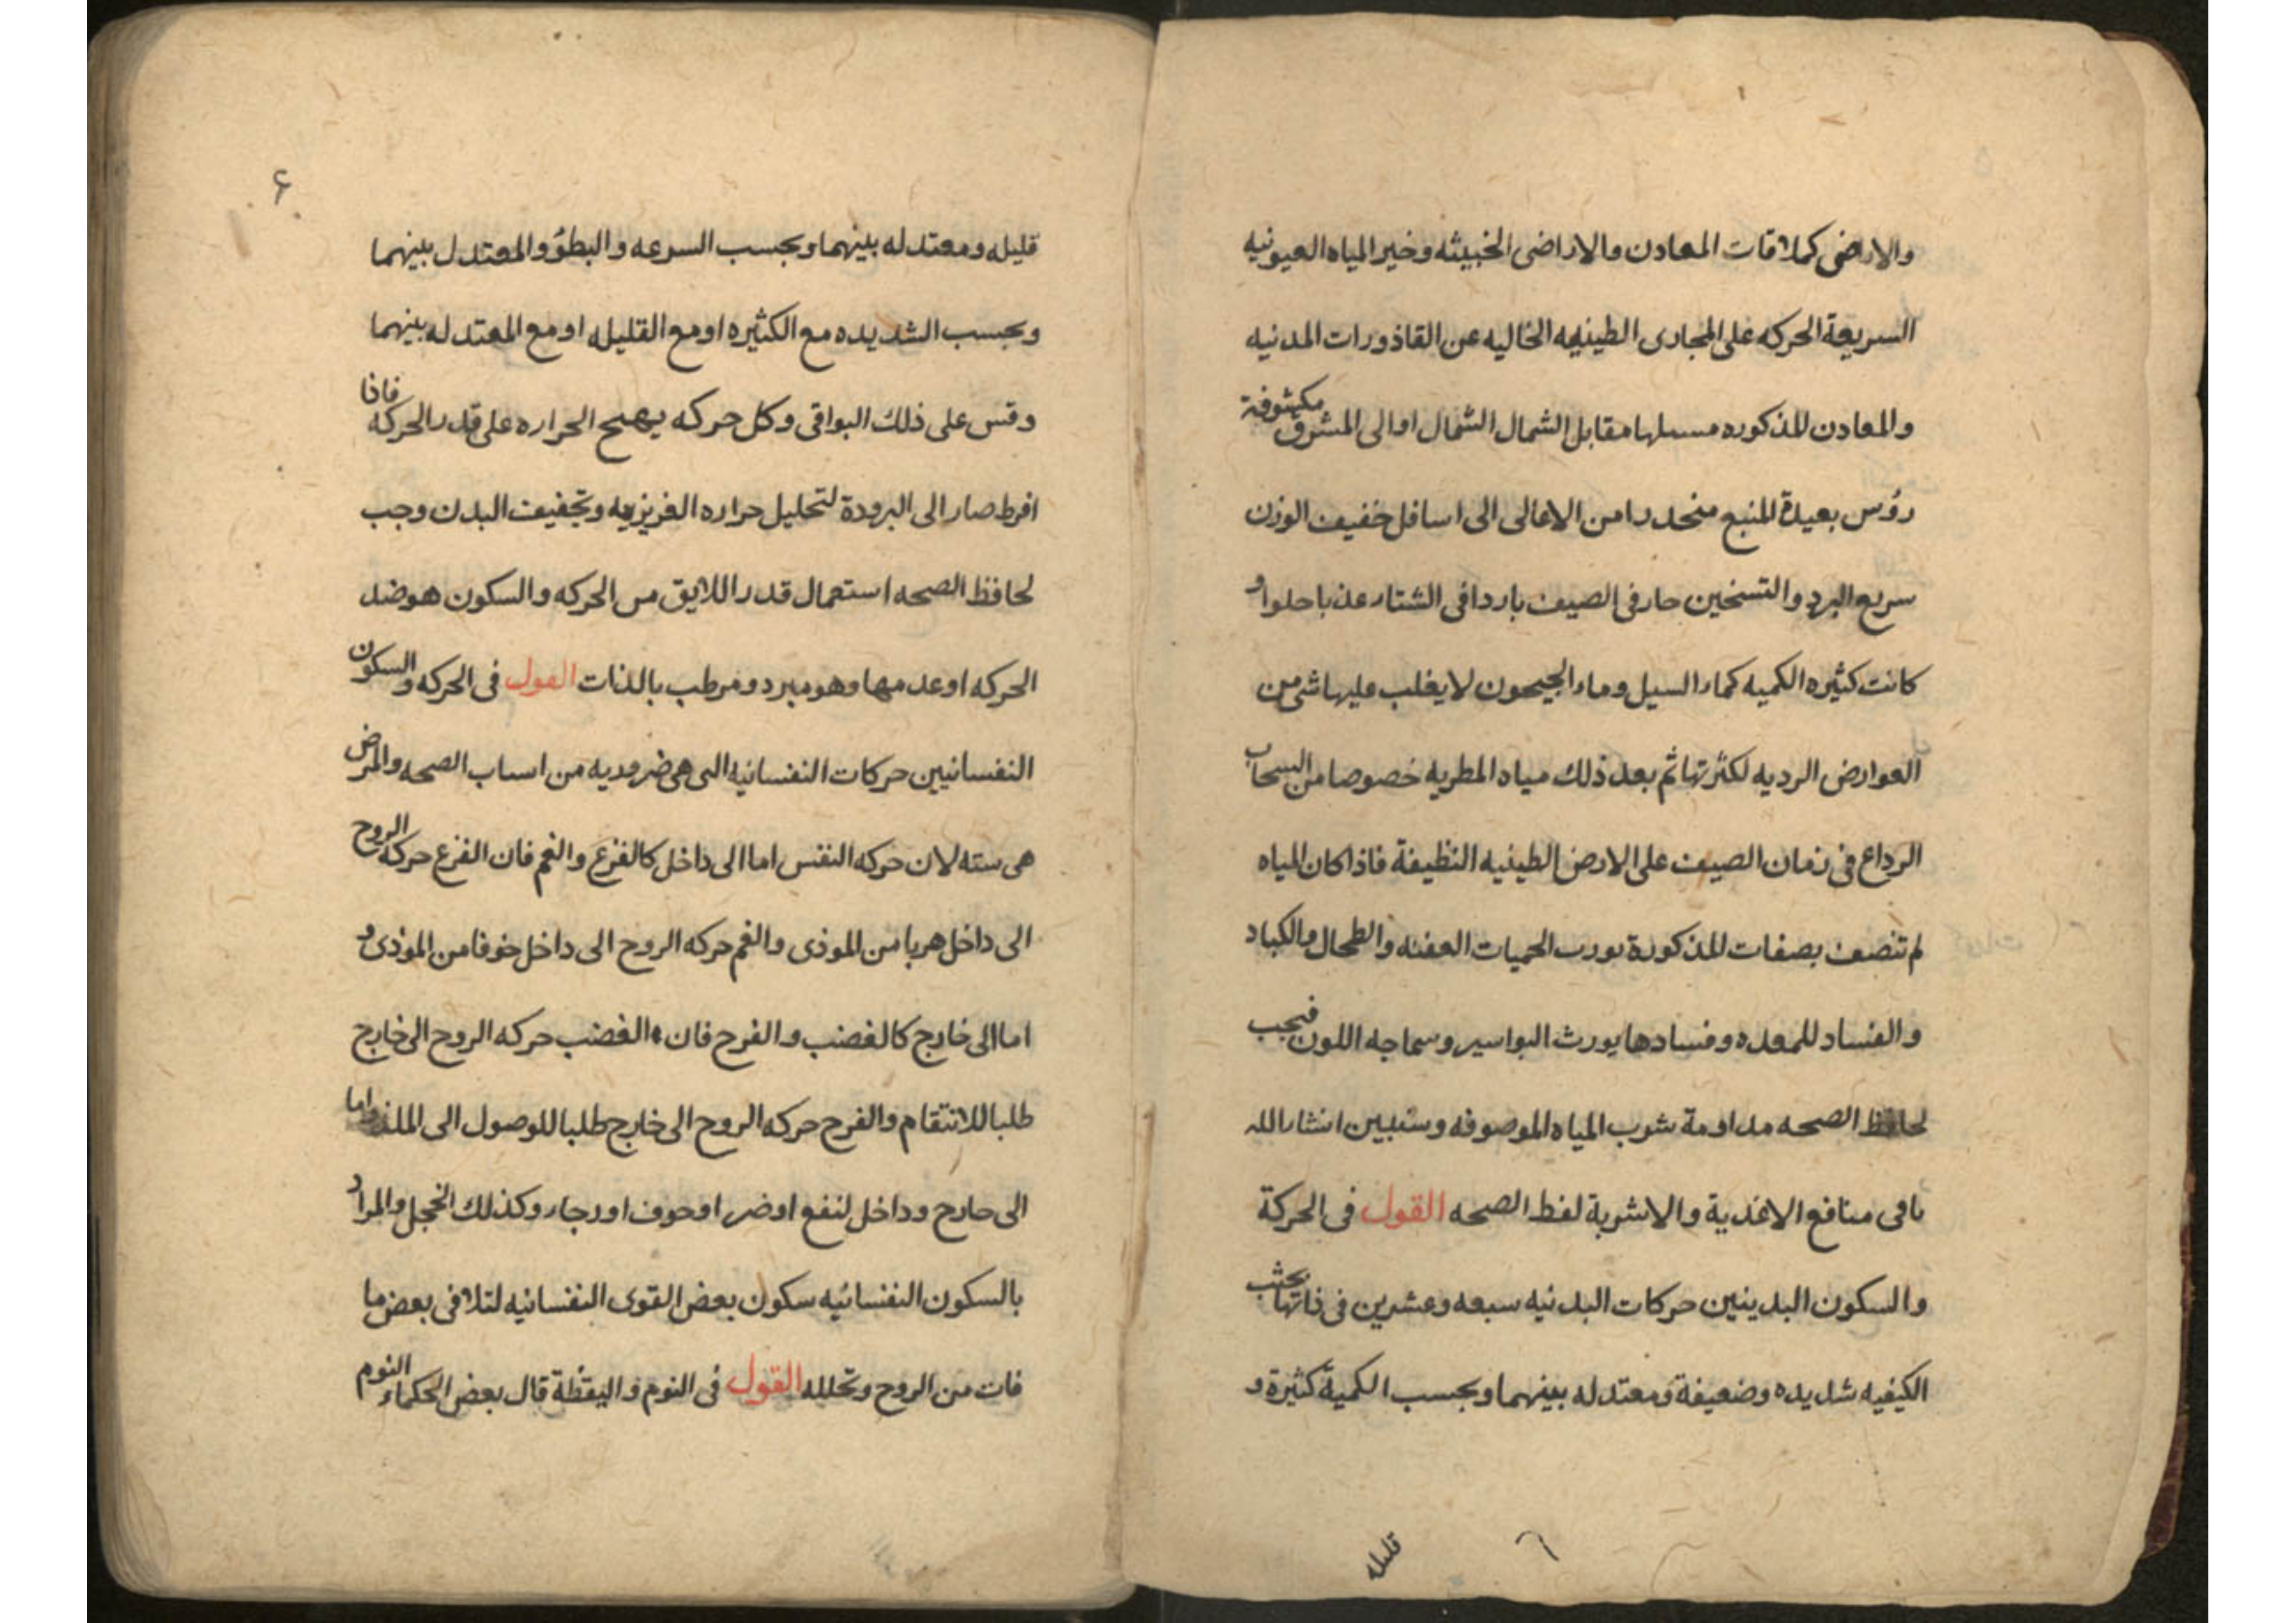 والاراضى كملاقات المعادن والاراضى الخبيثه وخير المياه العيونيه
السريعة الحركه على المجارى الطينيه الخاليه عن القاذورات المدنيه
والمعادن المذكوره مسيلها مقابل الشمال الشمال او الى المشرق مكشوفة
رؤس بعيدة المنبع منحدرا من الاعالى الى اسافل خفيف الوزن
سريع البرد والتسخين حار فى الصيف باردا فى الشتاء عذبا حلوا و
كانت كثيره الكميه كماء السيل وماء الجيحون لا يغلب عليها شئ من
العوارض الرديه لكثرتها ثم بعد ذلك مياه المطريه خصوصا من السحاب
الرداع فى زمان الصيف على الارض الطينيه النظيفة فاذا كان المياه
لم تتصف بصفات المذكورة يورث الحميات العفنه والطحال والكباد
والفساد للمعده وفسادها يورث البواسير وسماجه اللون فيجب
لحافظ الصحه مداومة شرب المياه الموصوفه وسنبين انشاء الله
نا فى منافع الاغذية والاشربة لفظ الصحه القول فى الحركة
والسكون البدينين حركات البدنيه سبعه وعشرين فى ذاتها بحسب
الكيفيه شديده وضعيفة ومعتدله بينهما وبحسب الكمية كثيرة و
قليله
۶
قليله ومعتدله بينهما وبحسب السرعه والبطؤ والمعتدل بينهما
وبحسب الشديده مع الكثيره او مع القليله او مع المعتدله بينهما
وقس على ذلك البواقى وكل حركه يهيج الحراره على قدر الحركه فاذا
افرط صار الى البرودة لتحليل حراره الغريزيه وتجفيف البدن وجب
لحافظ الصحه استعمال قدر اللايق من الحركه والسكون هو ضد
الحركه او عدمها وهو مبرد ومرطب بالذات القول فى الحركه والسكون
النفسانيين حركات النفسانيه التى هى ضروريه من اسباب الصحه والمرض
هى سته لان حركه النفس اما الى داخل كالفزع والغم فان الفزع حركه الروح
الى داخل هربا من الموذى والغم حركه الروح الى داخل خوفا من الموذى و
اما الى خارج كالغضب والفرح فان الغضب حركه الروح الى خارج
طلبا للانتقام والفرح حركه الروح الى خارج طلبا للوصول الى الملذ واما
الى خارج وداخل لنفع او ضر او خوف او رجاء وكذلك الخجل والمراد
بالسكون النفسانيه سكون بعض القوى النفسانيه لتلافى بعض ما
فات من الروح وتحلله القول فى النوم واليقظة قال بعض الحكماء النوم